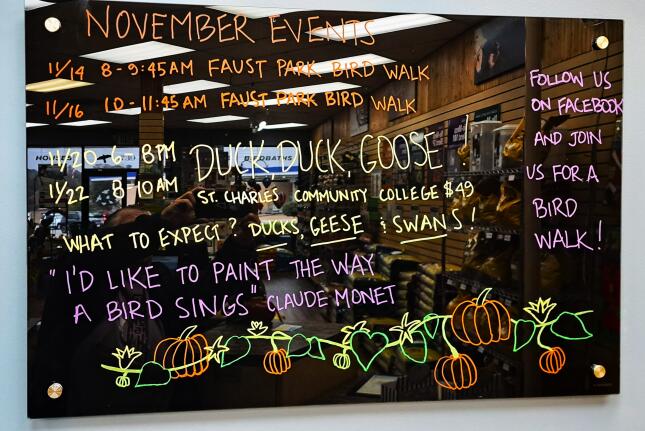 NOVEMBER EVENTS
11/14 8-9:45AM FAUST PARK BIRD WALK
11/16 10-11:45AM FAUST PARK BIRD WALK
11/20 6-8PM DUCK, DUCK, GOOSE
11/22 8-10AM ST. CHARLES COMMUNITY COLLEGE $49
WHAT TO EXPECT? DUCKS, GEESE & SWANS!
"I'D LIKE TO PAINT THE WAY
A BIRD SINGS" CLAUDE MONET
FOLLOW US
ON FACEBOOK
AND JOIN
US FOR A
BIRD
WALK!
HOUSES
BIRDBATHS